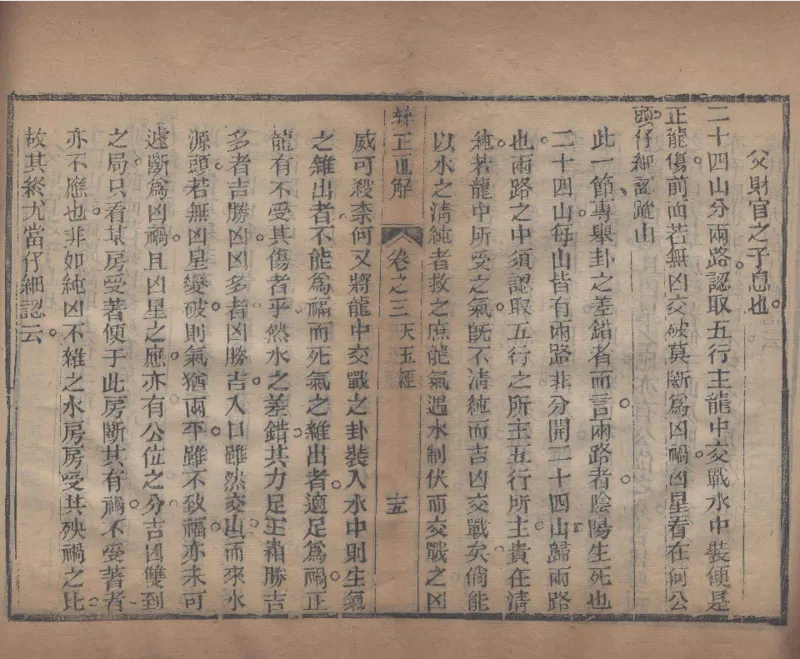 父財官之子息也
二十四山分兩路認取五行主龍中交戰水中裝便是
正龍傷前面若無凶交破莫斷為凶禍凶星看在何公
頭仔細認蹤由
此一節專舉卦之差錯者而言兩路者陰陽生死也
二十四山每山皆有兩路非分開二十四山歸兩路
也兩路之中須認取五行之所主五行所主貴在清
純若龍中所受之氣既不清純而吉凶交戰矣倘能
以水之清純者救之庶龍氣遇水制伏而交戰之凶
辯正直解 卷之三 天玉經 十五
威可殺柰何又將龍中交戰之卦裝入水中則生氣
之雜出者不能為福而死氣之雜出者適足為禍正
龍有不受其傷者乎然水之差錯其力足相勝吉
多者吉勝凶凶多者凶勝吉入口雖然交山而來水
源頭若無凶星變破則氣猶兩平雖不致福亦未可
遽斷為凶禍且凶星之應亦有公位之分吉凶雙到
之局只看某房受著便于此房斷其有禍不受著者
亦不應也非如純凶不雜之水房房受其殃禍之比
故其終尤當仔細認云